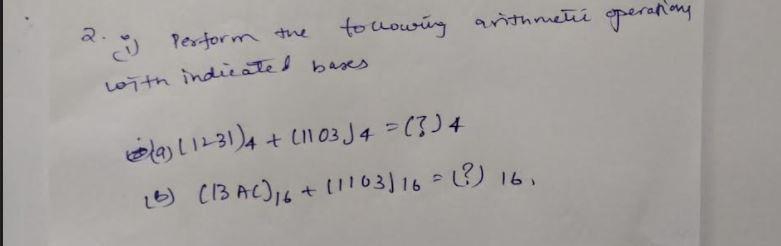 2. (i) Perform the following arithmetic operations
with indicated bases
(a) (1231)4 + (1103)4 = (?)4
(b) (13AC)16 + (1103)16 = (?) 16.